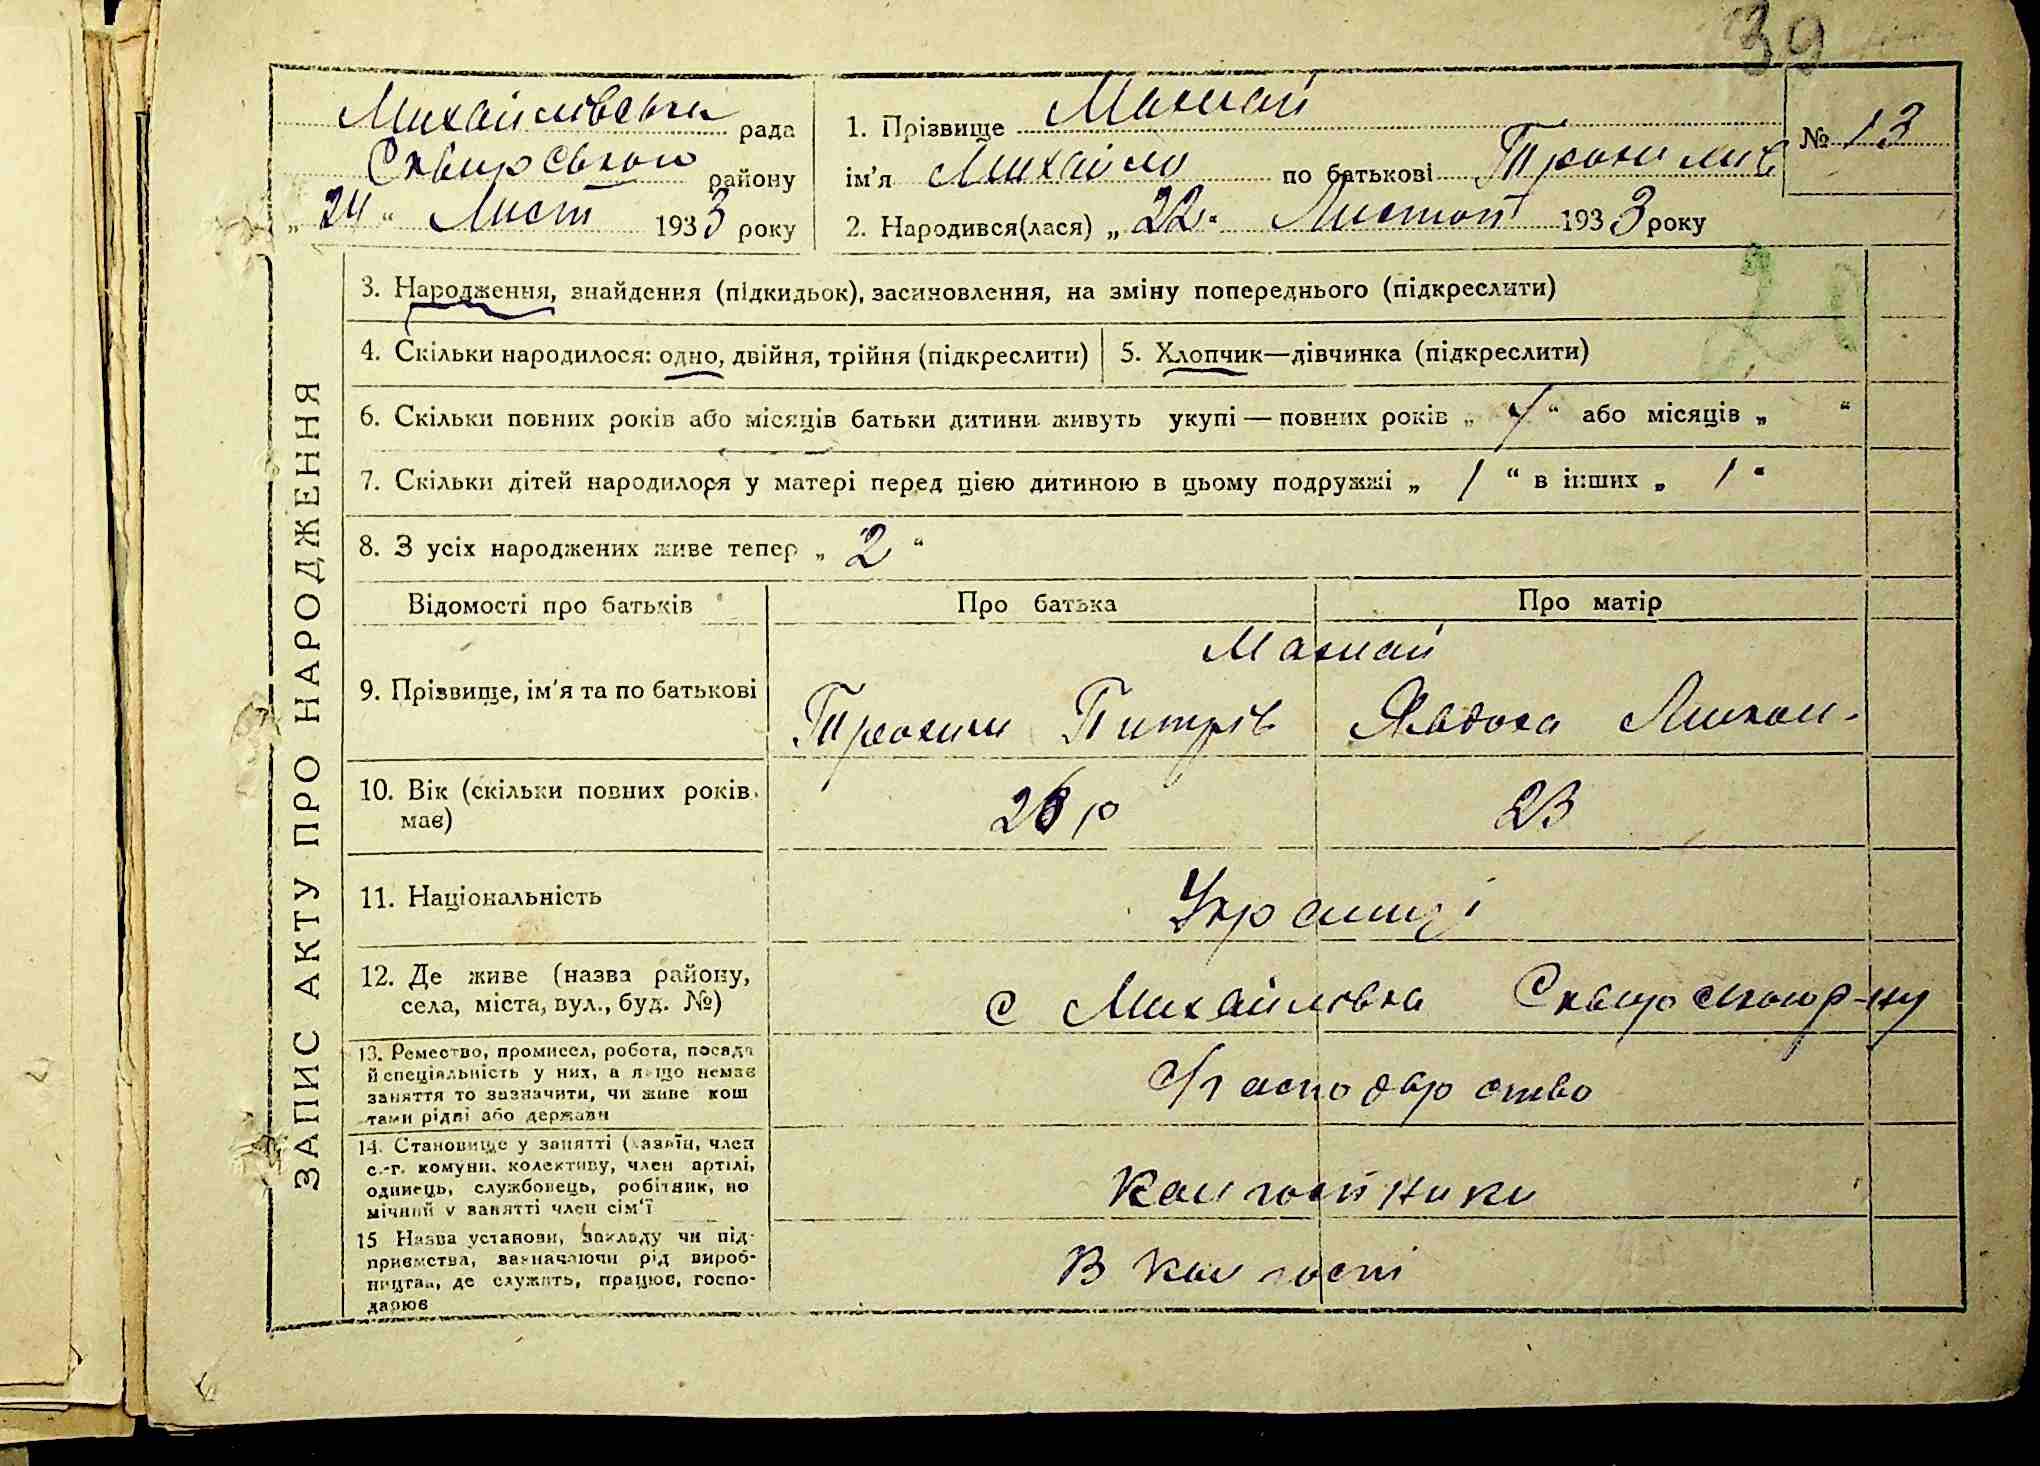 39
Михайлівська рада
Сквирського району
„ 24 “ Лист 1933 року
1. Прізвище
ім'я Михайло по батькові Трохимів
2. Народився(лася) „ 22 “ Листоп 1933 року
№ 13
20
ЗАПИС АКТУ ПРО НАРОДЖЕННЯ
3. Народження, знайдення (підкидьок), засиновлення, на зміну попереднього (підкреслити)
4. Скільки народилося: одно, двійня, трійня (підкреслити)
5. Хлопчик—дівчинка (підкреслити)
6. Скільки повних років або місяців батьки дитини живуть укупі — повних років „ “ або місяців „ “
7. Скільки дітей народилося у матері перед цією дитиною в цьому подружжі „ 1 “ в інших „ 1 “
8. З усіх народжених живе тепер „ 2 “
Відомості про батьків Про батька Про матір
9. Прізвище, ім'я та по батькові
Трохим Питрів Явдоха Микол.
10. Вік (скільки повних років має) 26 р 23
11. Національність Українці
12. Де живе (назва району,
села, міста, вул., буд. №) с Михайлівка Сквирського р-ну
13. Ремество, промисел, робота, посада
й спеціяльність у них, а якщо немає
заняття то зазначити, чи живе кош
тами рідні або держави
Господарство
14. Становище у занятті (хазяїн, член
с.-г. комуни, колективу, член артілі,
одинець, службовець, робітник, по
мічний у занятті член сім'ї
Колгоспники
15 Назва установи, закладу чи під-
приємства, зазначаючи рід вироб-
ництва, де служить, працює, госпо-
дарює
В колгоспі